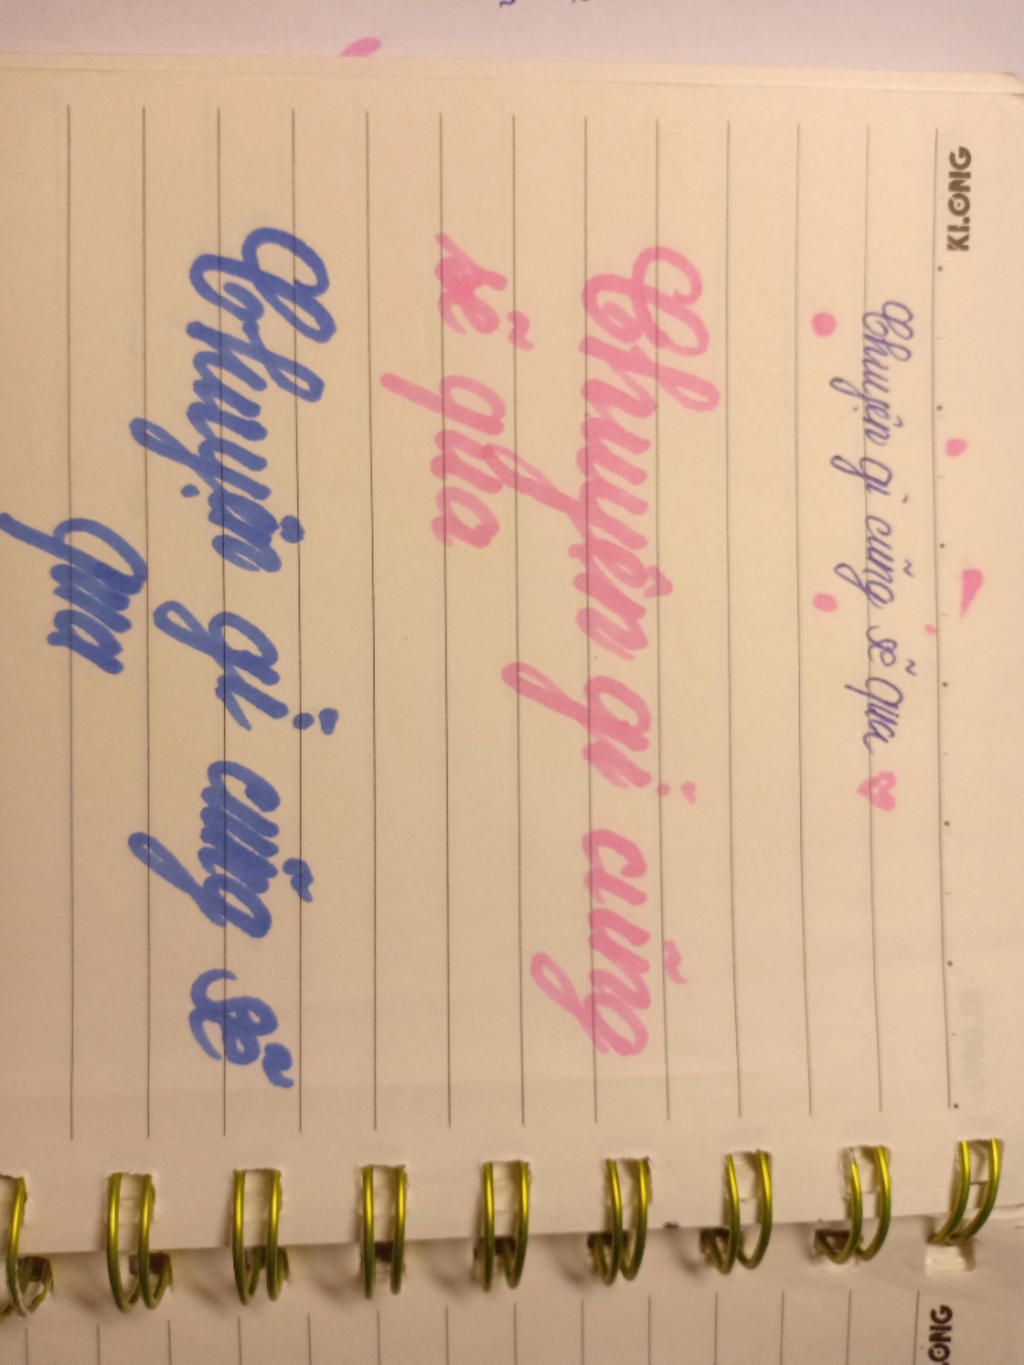 KLONG
Chuyện gì cũng sẽ qua
Chuyện gì cũng
sẽ qua
Chuyện gì cũng sẽ
qua
LONG